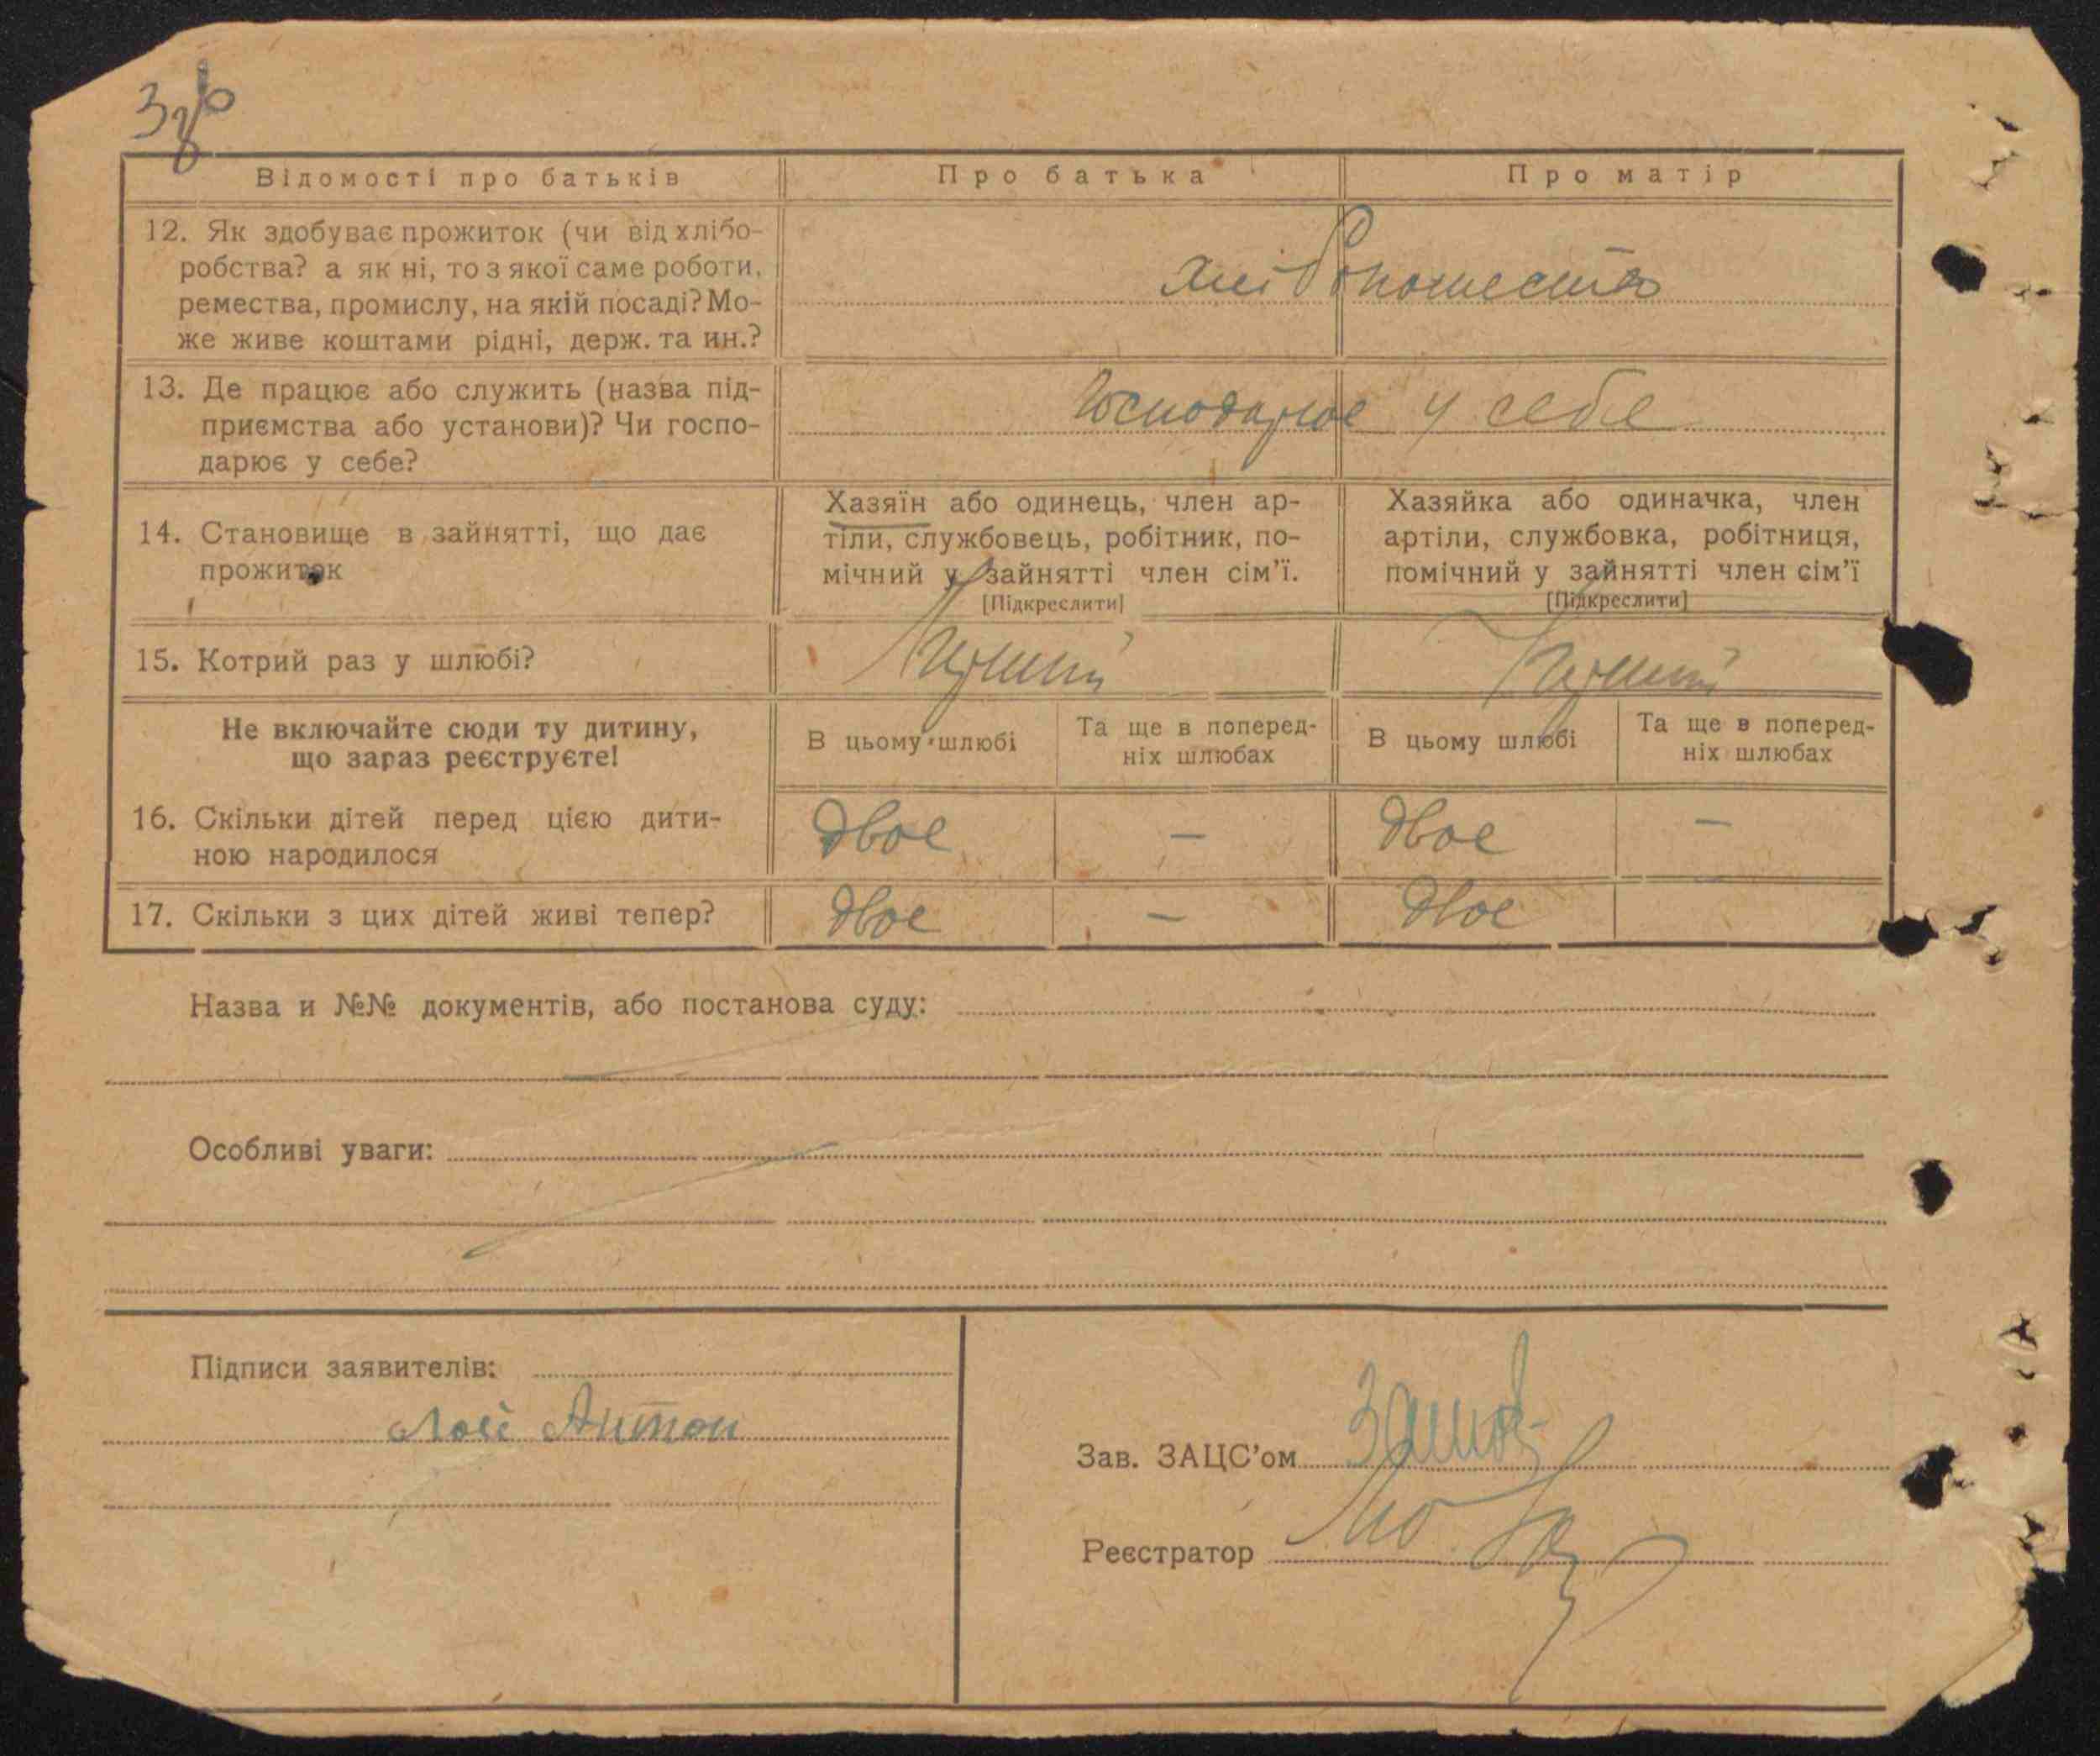 Відомості про батьків Про батька Про матір
12. Як здобуває прожиток (чи від хлібо-
робства? а як ні, то з якої саме роботи,
ремества, промислу, на якій посаді? Мо-
же живе коштами рідні, держ. та ин.?
13. Де працює або служить (назва під-
приємства або установи)? Чи госпо-
дарює у себе?
Господарює у себе
14. Становище в зайнятті, що дає
прожиток
Хазяїн або одинець, член ар-
тіли, службовець, робітник, по-
мічний у зайнятті член сім’ї.
[Підкреслити]
Хазяйка або одиначка, член
артіли, службовка, робітниця,
помічний у зайнятті член сім’ї
[Підкреслити]
15. Котрий раз у шлюбі?
Перший Перший
Не включайте сюди ту дитину,
що зараз реєструєте!
В цьому шлюбі
Та ще в поперед-
ніх шлюбах
В цьому шлюбі
Та ще в поперед-
ніх шлюбах
16. Скільки дітей перед цією дити-
ною народилося
двое — двое —
17. Скільки з цих дітей живі тепер?
двое — двое
Назва и №№ документів, або постанова суду:
Особливі уваги:
Підписи заявителів:
Антон
Зав. ЗАЦС’ом
Реєстратор